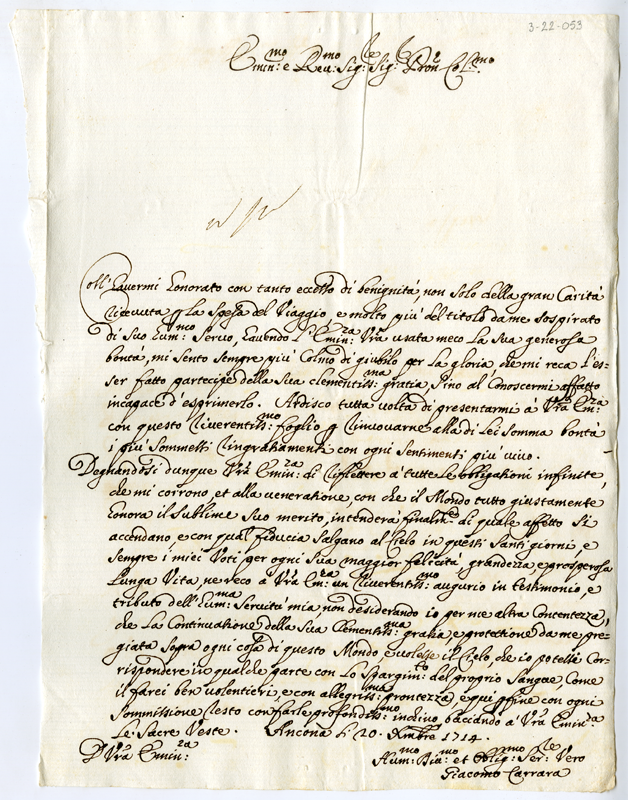 3-22-053
Emin:mo e Reu:mo Sig:le Sig: Pron Col:mo
Coll' Hauermi honorato con tanto eccesso di benignità, non solo della gran Carità
riceuuta p la Spesa del Viaggio, e molto più del titolo da me sospirato
di Suo Hum:mo Seruo, hauendo l'Emin:za Vrã usata meco la Sua generosa
bontà, mi sento sempre più Colmo di giubilo per la gloria che mi reca l'es-
ser fatto partecipe della Sua clementiss:ma gratia, sino al Conoscermi affatto
incapace d'esprimerlo. Ardisco tutta uolta di presentarmi à Vrã Em:za
con questo riuerentiss:mo foglio p rinuouarne alla di Lei somma bontà
i più sommessi ringratiamenti con ogni sentimenti più uiuo.
Degnandosi dunque Vrã Emin:za di riflettere à tutte le obbligationi infinite,
che mi corrono, et alla ueneratione, con che il Mondo tutto giustamente
honora il sublime Suo merito, intenderà finalmte di quale affetto si
accendano e con qual fiducia Salgano al Cielo in questi Santi giorni, e
sempre i miei Voti per ogni Sua maggior felicità, grandezza, e prosperosa
lunga Vita, ne reco à Vrã Em:za un riuerentiss:mo augurio in testimonio, e
tributo dell'Hum:ma Seruitù mia, non desiderando io per me altra Contentezza,
che la Continuatione della Sua Clementiss:ma gratia, e protettione da me pre-
giata sopra ogni cosa di questo Mondo e uolesse il Cielo, che io potessi Cor-
rispondere in qualche parte con lo spargim:to del proprio Sangue, Come
il farei ben uolentieri, e con allegriss:ma prontezza, e qui p fine con ogni
sommissione resto con farle profondiss:mo inchino, baciando à Vrã Emin:za
le Sacre Veste. Ancona li 20. Xmbre 1714.
D Vrã Emin:za
Hum:mo Dia:mo et Oblig:mo Ser:le Vero
Giacomo Carrara